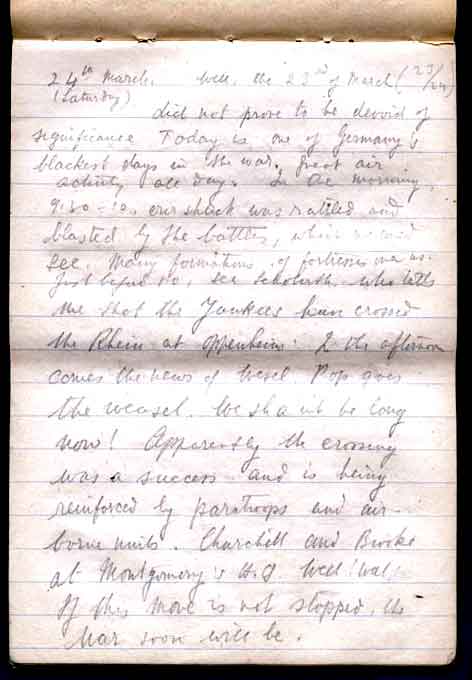 24th March. Well, the 23rd of March (23/24)
(Saturday)
did not prove to be devoid of
significance Today is one of Germany's
blackest days in the war. Great air
activity all day. In the morning,
9.30 - 10. our shack was rattled and
blasted by the battles, which we could
see. Many formations of fortresses over us.
Just before 10, see who tells
me that the Yankees have crossed
the Rhein at Oppenheim. In the afternoon
comes the news of Wesel. Pop goes
the weasel. We shan't be long
now! Apparently the crossing
was a success and is being
reinforced by paratroops and air-
borne units. Churchill and Brooke
at Montgomery's H.Q. Well! Well!
If this move is not stopped, the
War soon will be.